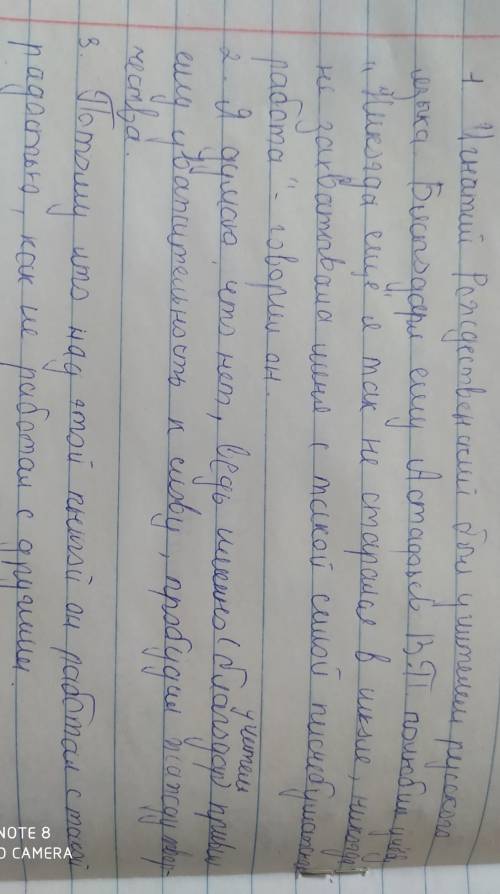 1 Игнатий Рождественский был учителем русского
языка. Благодаря ему Астафьев В.П полюбил учёбу
"Никогда ещё я так не старался в школе, никогда
не захватывала меня с такой силой писчебумажная
работа" - говорил он.
2. Я думаю, что нет, ведь именно (благодаря) учитель привил
ему уважительность к слову, пробудил жажду твор-
чества.
3. Потому что над этой книгой он работал с такой
радостью, как не работал с другими.
NOTE 8
CAMERA